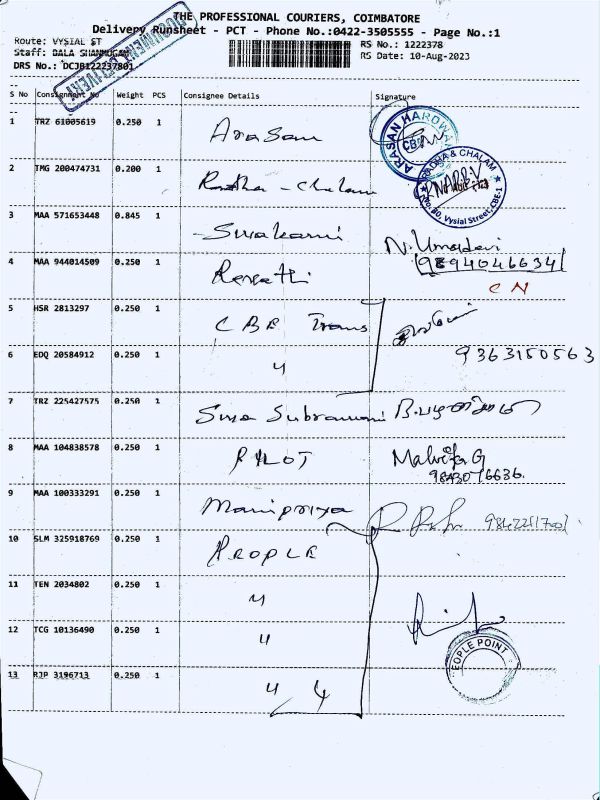 THE PROFESSIONAL COURIERS, COIMBATORE
Delivery Runsheet - PCT - Phone No.:0422-3505555 - Page No.:1
Route: VYSIAL ST
RS No.: 1222378
Staff: BALA SHANMUGAM
RS Date: 10-Aug-2023
DRS No.: DCJB122237801
S No Consignment No Weight PCS Consignee Details Signature
1 TRZ 61005619 0.250 1 Arasan
ARASAN HARDWA
CBE
2 TMG 200474731 0.200 1 Radha - Chalam
RADHA & CHALAM
No. 80, Vysial Street, CBE-1
3 MAA 571653448 0.845 1 Sivakami N. Umadevi
9894046634
4 MAA 944014509 0.250 1 Revathi
CN
5 HSR 2813297 0.250 1 CBE Trans
6 EDQ 20584912 0.250 1 " 9363150563
7 TRZ 225427575 0.250 1 Siva Subramani
8 MAA 104838578 0.250 1 PILOT
9843076636.
9 MAA 100333291 0.250 1 Manipriya
10 SLM 325918769 0.250 1 PEOPLE
11 TEN 2034802 0.250 1 "
12 TCG 10136490 0.250 1 "
EOPLE POINT
13 RJP 3196713 0.250 1 " 4